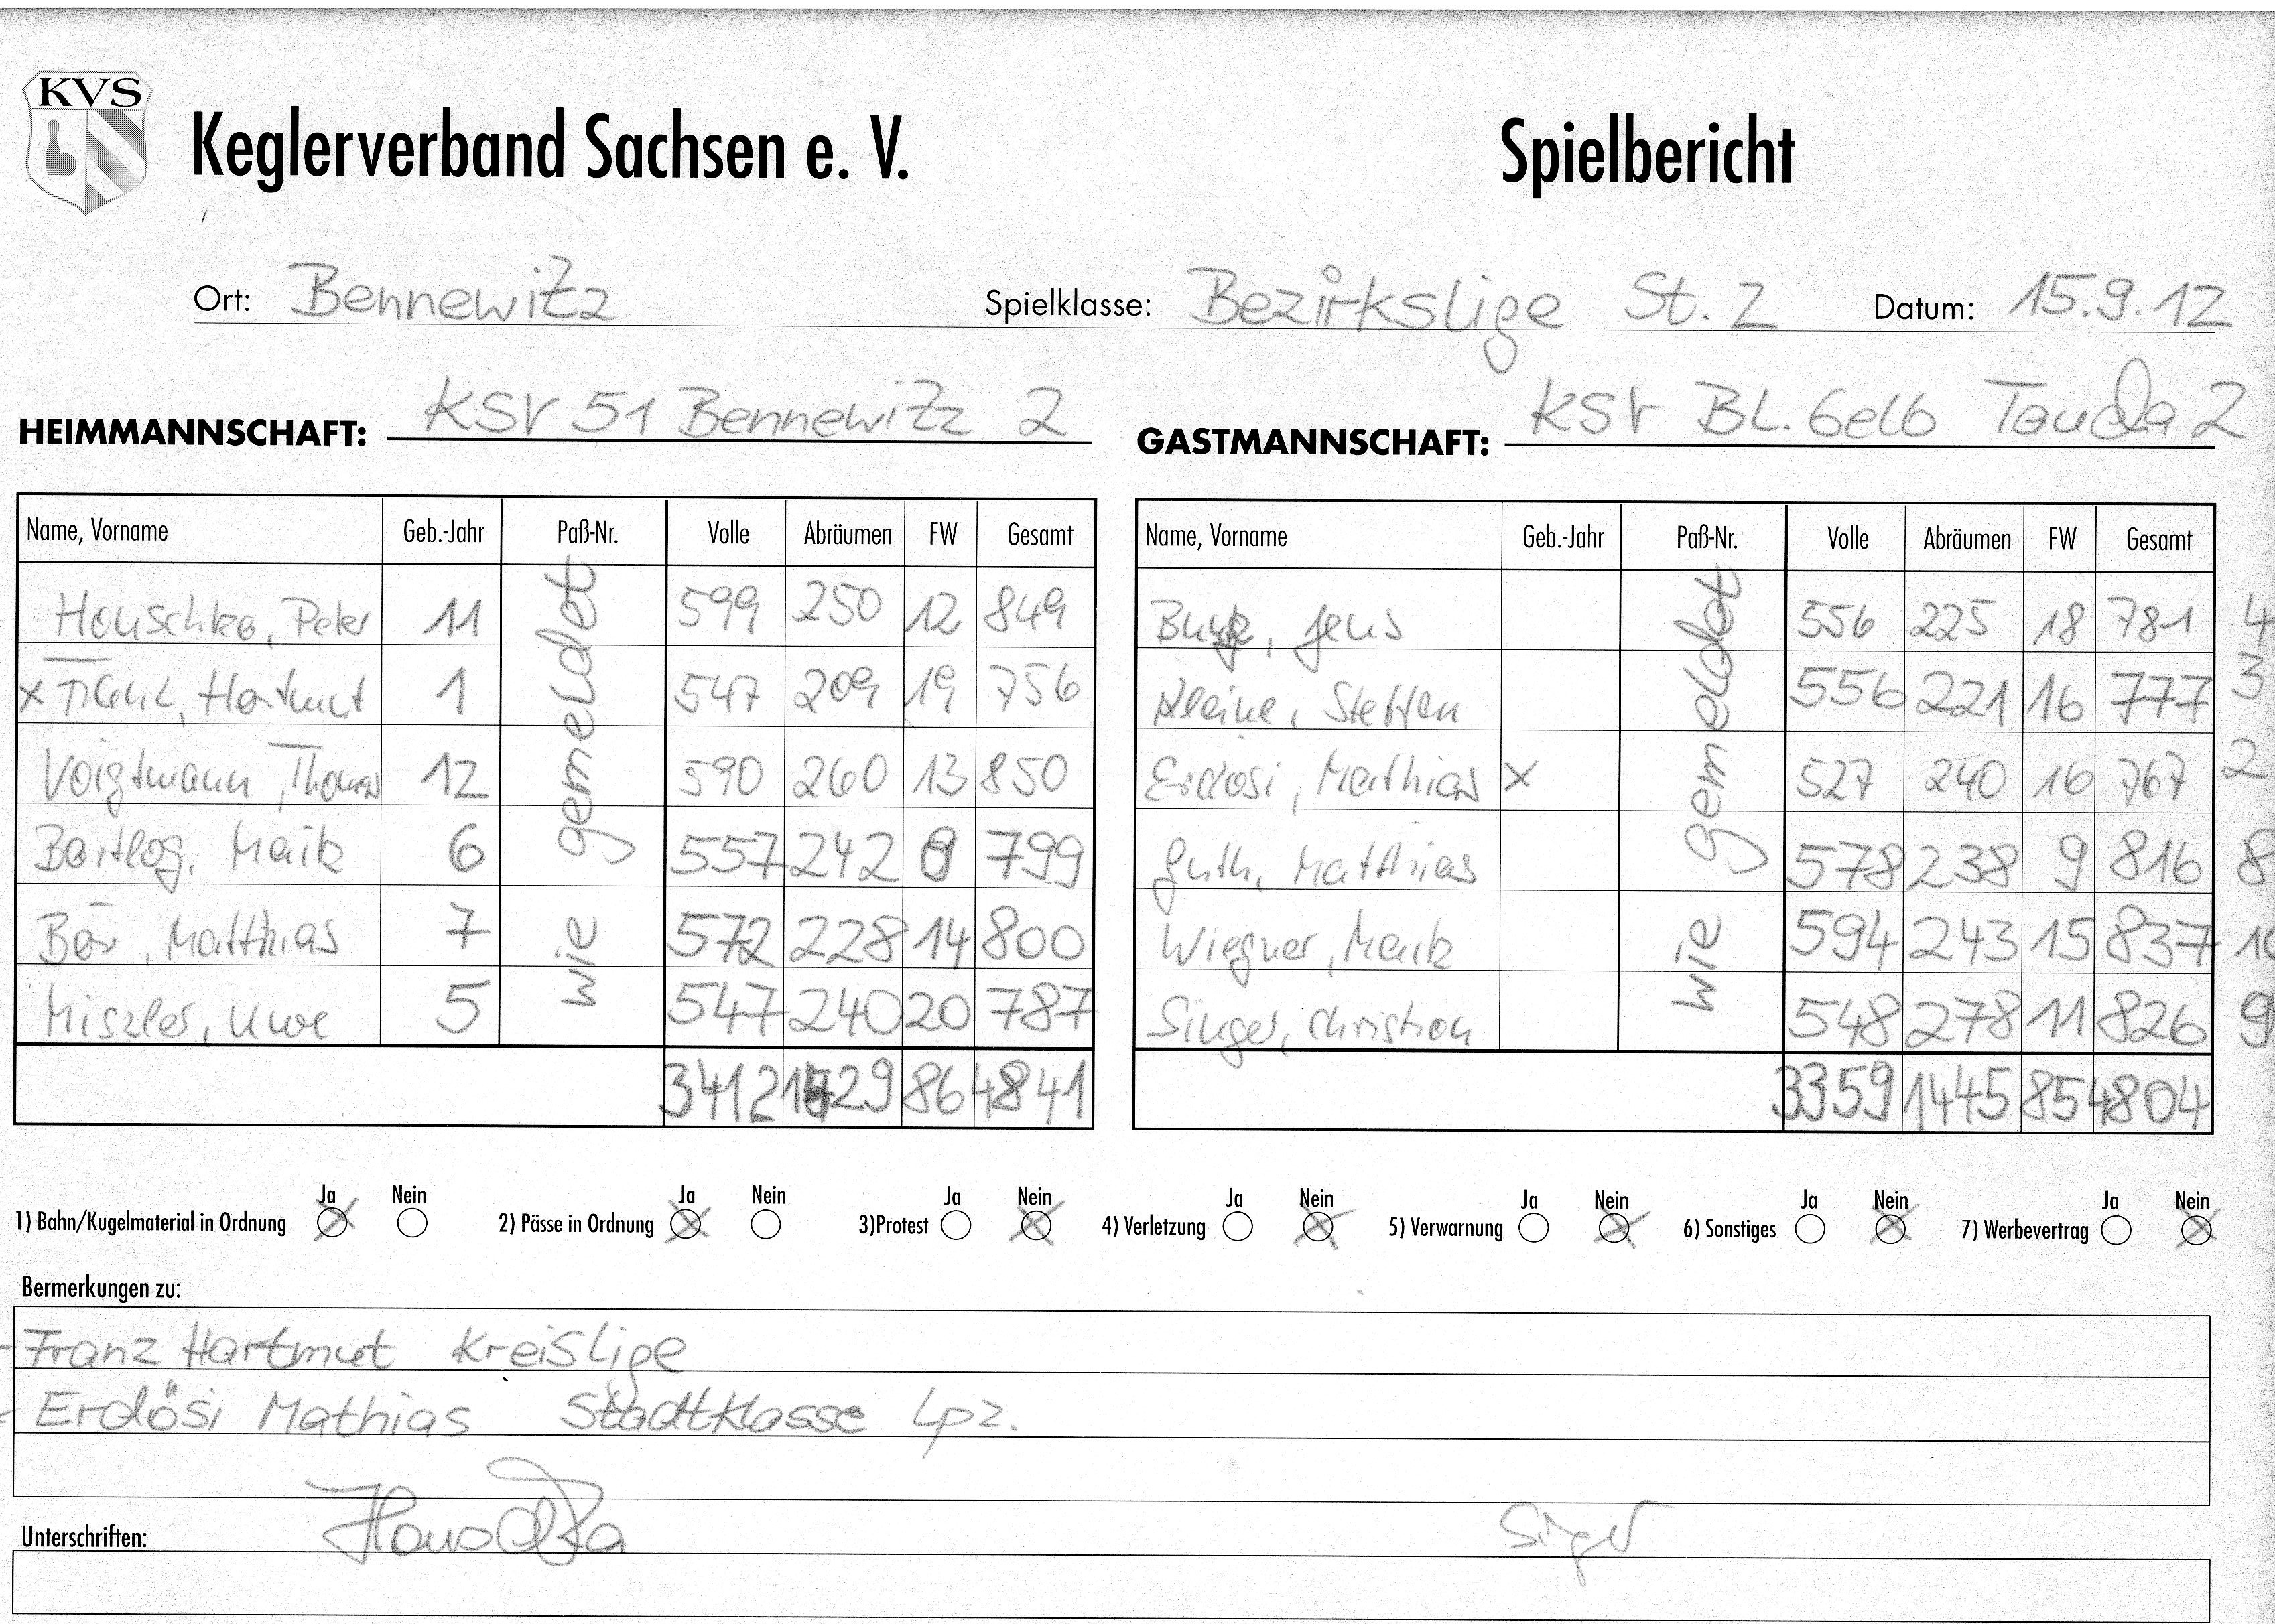 KVS
Keglerverband Sachsen e. V.
Spielbericht
Ort: Bennewitz Spielklasse: Bezirkslige St. 2 Datum: 15.9.12
HEIMMANNSCHAFT: KSV 51 Bennewitz 2
GASTMANNSCHAFT: KSV BL. Gelb Taucha 2
Name, Vorname Geb.-Jahr Paß-Nr. Volle Abräumen FW Gesamt
Peter 11 599 250 12 849
x Hartmut 1 547 209 19 756
Voigtmann, Thomas 12 590 260 13 850
Bartlog, Maik 6 557 242 9 799
Bär, Matthias 7 572 228 14 800
Uwe 5 547 240 20 787
wie gemeldet
3412 1429 86 4841
Name, Vorname Geb.-Jahr Paß-Nr. Volle Abräumen FW Gesamt
Jens 556 225 18 781 4
Kleine, Steffen 556 221 16 777 3
Erdösi, Mathias x 527 240 16 767 2
Guth, Matthias 578 238 9 816 8
Wiegner, Maik 594 243 15 837 10
Singer, Christian 548 278 11 826 9
wie gemeldet
3359 1445 85 4804
1) Bahn/Kugelmaterial in Ordnung Ja Nein 2) Pässe in Ordnung Ja Nein 3)Protest Ja Nein 4) Verletzung Ja Nein 5) Verwarnung Ja Nein 6) Sonstiges Ja Nein 7) Werbevertrag Ja Nein
Bermerkungen zu:
Franz Hartmut Kreislige
Erdösi Mathias Stadtklasse Lpz.
Unterschriften: